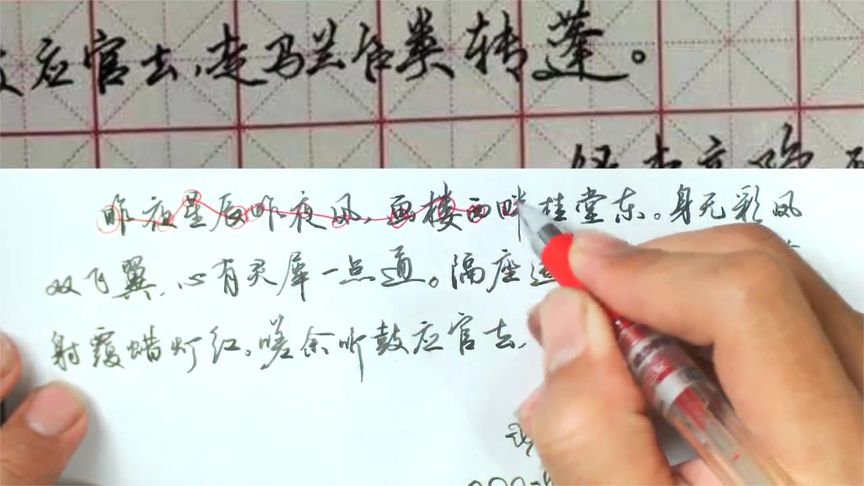 应官去，走马兰台类转蓬。
昨夜星辰昨夜风，画楼西畔桂堂东。身无彩凤
双飞翼，心有灵犀一点通。隔座送
射覆蜡灯红。嗟余听鼓应官去，